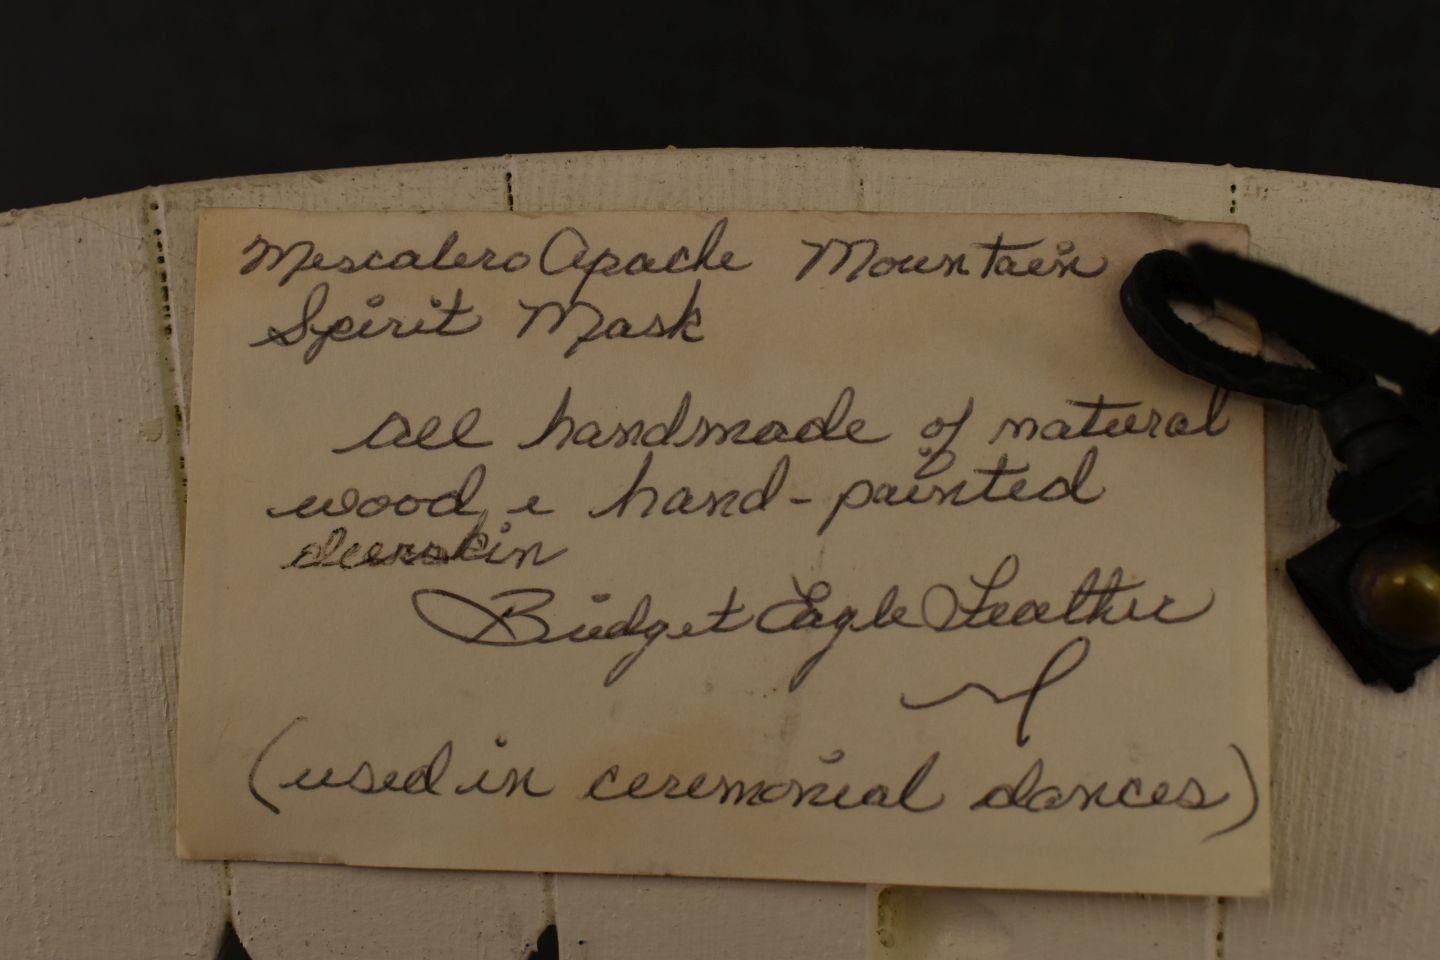 Mescalero Apache Mountain
Spirit Mask
all handmade of natural
wood & hand-painted
deerskin
Bridget Eagle Feather
(used in ceremonial dances)